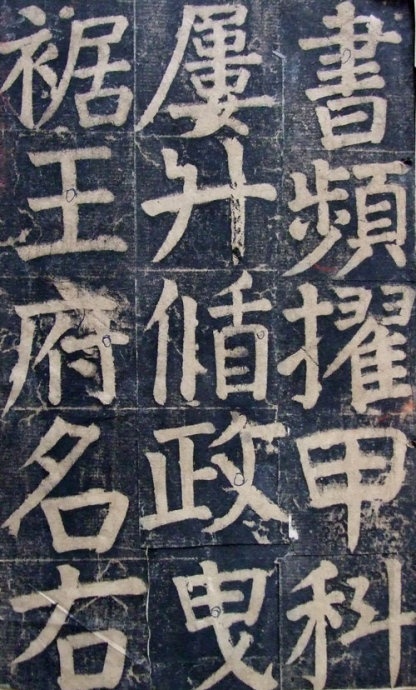 書頻擢甲科
屢升偱政曳
裾王府名右